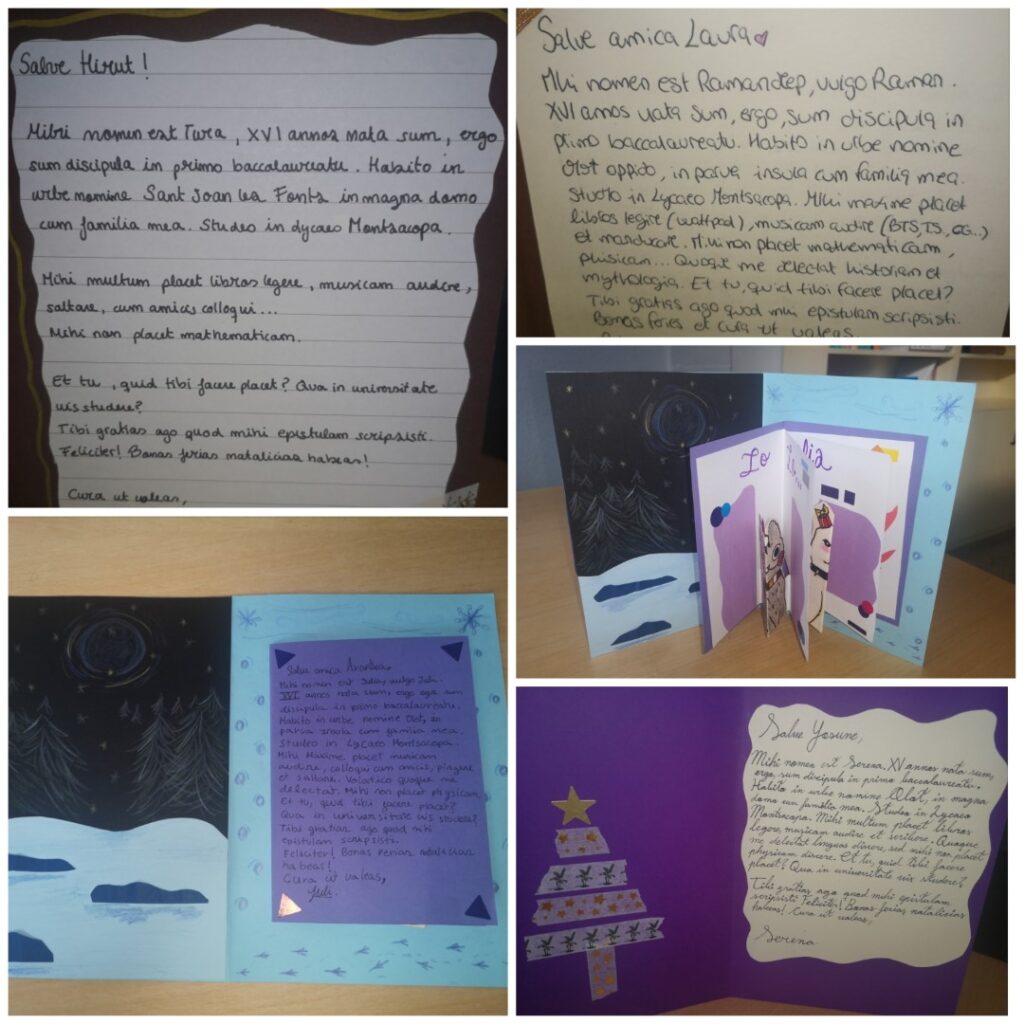 Salve Hirut!
Mihi nomen est Tura, XVI annos nata sum, ergo
sum discipula in primo baccalaureatu. Habito in
urbe nomine Sant Joan les Fonts in magna domo
cum familia mea. Studeo in Lycaeo Montsacopa.
Mihi multum placet libros legere, musicam audire,
saltare, cum amicis colloqui...
Mihi non placet mathematicam.
Et tu, quid tibi facere placet? Qua in universitate
vis studere?
Tibi gratias ago quod mihi epistulam scripsisti.
Feliciter! Bonas ferias natalicias habeas!
Cura ut valeas,
Salve amica Laura
Mihi nomen est Ramandeep, vulgo Raman.
XVI annos nata sum, ergo, sum discipula in
primo baccalaureatu. Habito in urbe nomine
Olot oppido, in parva insula cum familia mea.
Studio in Lycaeo Montsacopa. Mihi maxime placet
libros legire (wattpad), musicam audire (BTS, TS, CG..)
et manducare. Mihi non placet mathematicam,
phisicam... Quoque me delectat historiam et
mythologia. Et tu, quid tibi facere placet?
Tibi gratias ago quod mihi epistulam scripsisti.
Bonas feries et cura ut valeas
Salve amica
Mihi nomen est
XVI annos nata sum, ergo ego sum
discipula in primo baccalaureatu.
Habito in urbe nomine Olot, in
parva insula cum familia mea.
Studeo in Lycaeo Montsacopa.
Mihi Maxime placet musicam
audire, colloqui cum amicis,
et saltare. quoque me
delectat. Mihi non placet physicam.
Et tu, quid tibi facere placet?
Qua in universitate vis studere?
Tibi gratias ago quod mihi
epistulam scripsisti.
Feliciter! Bonas ferias natalicias
habeas!
Cura ut valeas,
Juli.
Salve Yosune,
Mihi nomen est Serena, XV annos nata sum,
ergo sum discipula in primo baccalaureatu.
Habito in urbe nomine Olot, in magna
domo cum familia mea. Studeo in Lycaeo
Montsacopa. Mihi multum placet libros
legere, musicam audire et scribere. Quoque
me delectat linguas discere, sed mihi non placet
physicam discere. Et tu, quid tibi facere
placet? Qua in universitate vis studere?
Tibi gratias ago quod mihi epistulam
scripsisti Feliciter! Bonas ferias natalicias
habeas! Cura ut valeas,
Serena